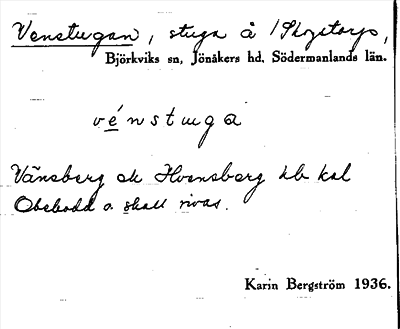 Venstugan, stuga å /Skogstorp,
Björkviks sn, Jönåkers hd, Södermanlands län.
vénstuga
Vänsberg ok Hvensberg kal
Obebodd o. skall rivas.
Karin Bergström 1936.